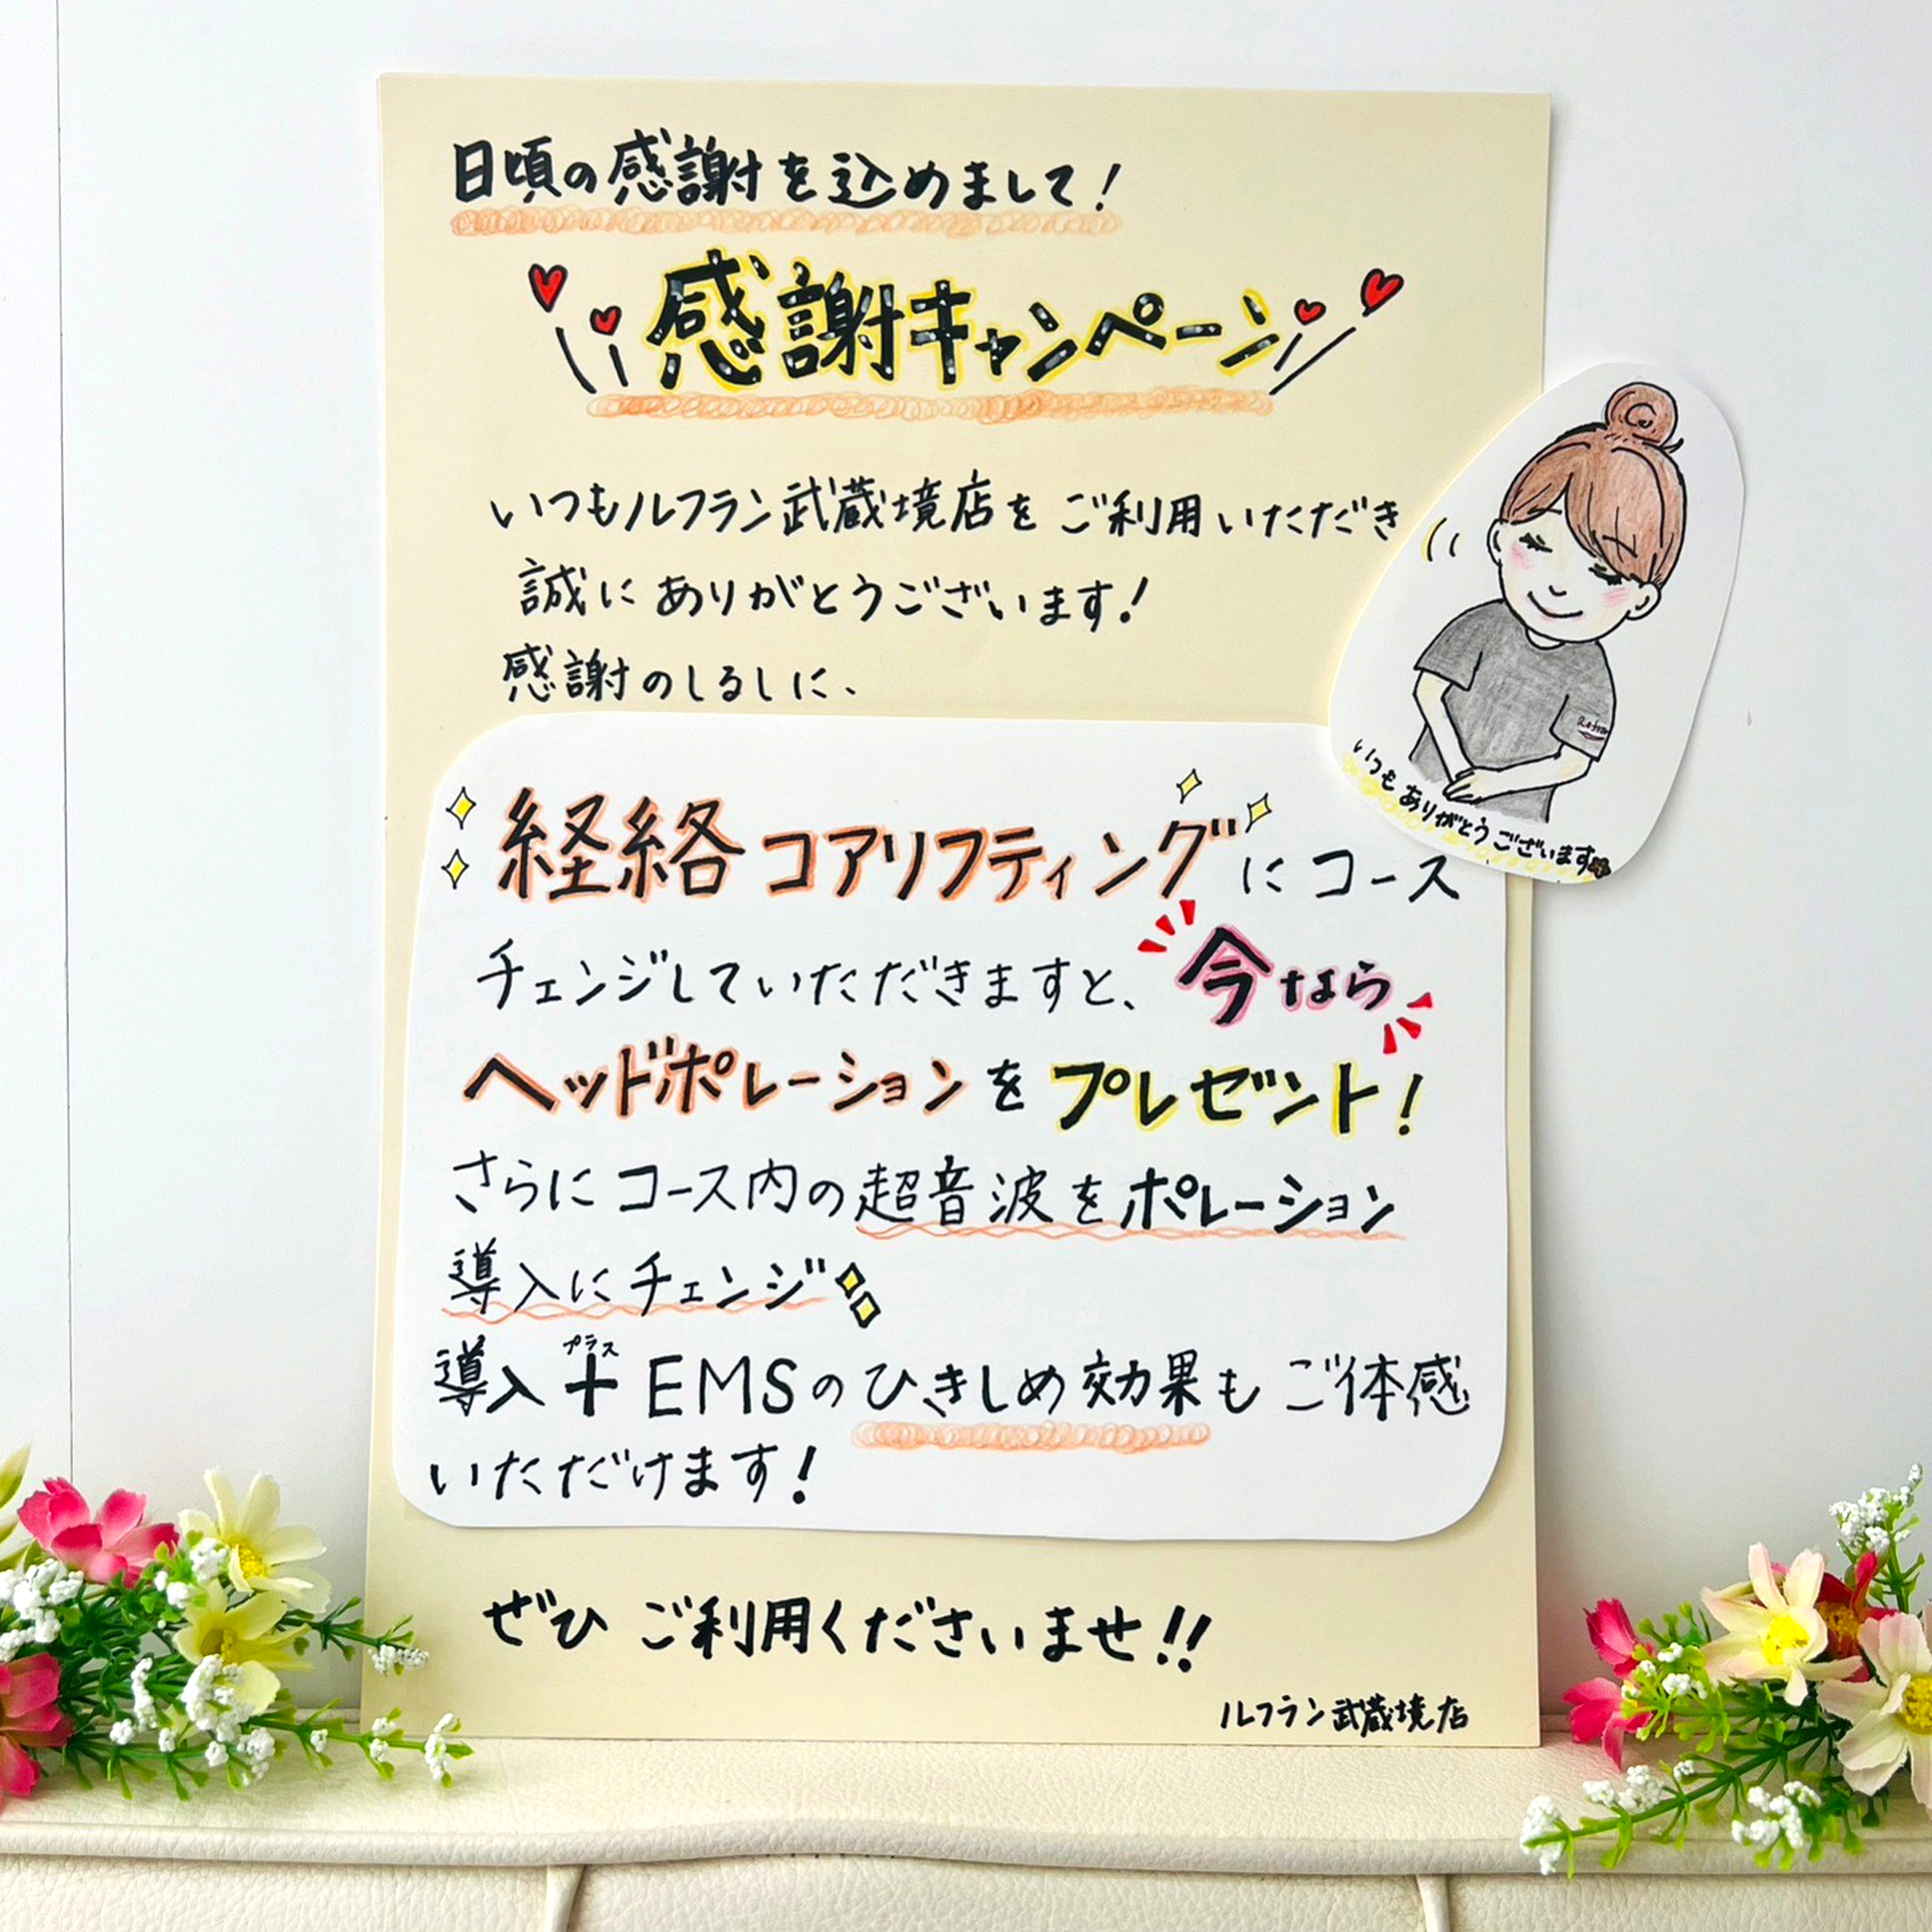 日頃の感謝を込めまして！
感謝キャンペーン
いつもルフラン武蔵境店をご利用いただき
誠にありがとうございます！
感謝のしるしに、
経絡コアリフティングにコース
チェンジしていただきますと、今なら
ヘッドポレーションをプレゼント！
さらにコース内の超音波をポレーション
導入にチェンジ
プラス
導入＋EMSのひきしめ効果もご体感
いただけます！
ぜひご利用くださいませ！！
ルフラン武蔵境店
Refran
いつもありがとうございます